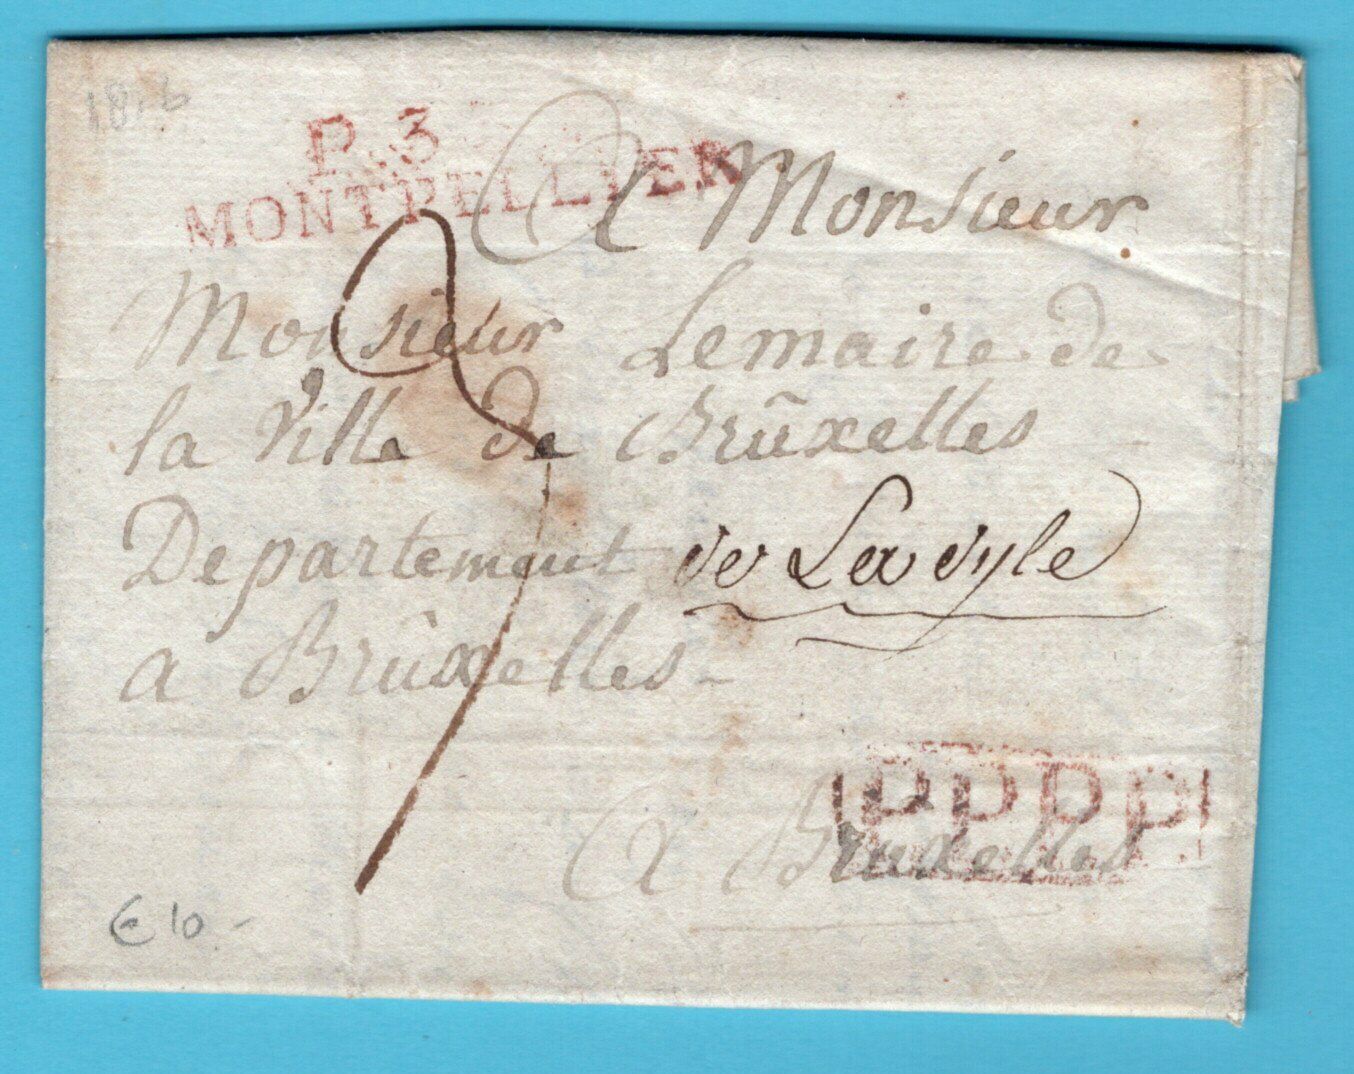 P. 3
MONTPELLIER
A Monsieur
Monsieur Lemaire de
la Ville de Brûxelles
Departement de La dyle
a Brûxelles
PPPP
A Bruxelles
€ 10 -